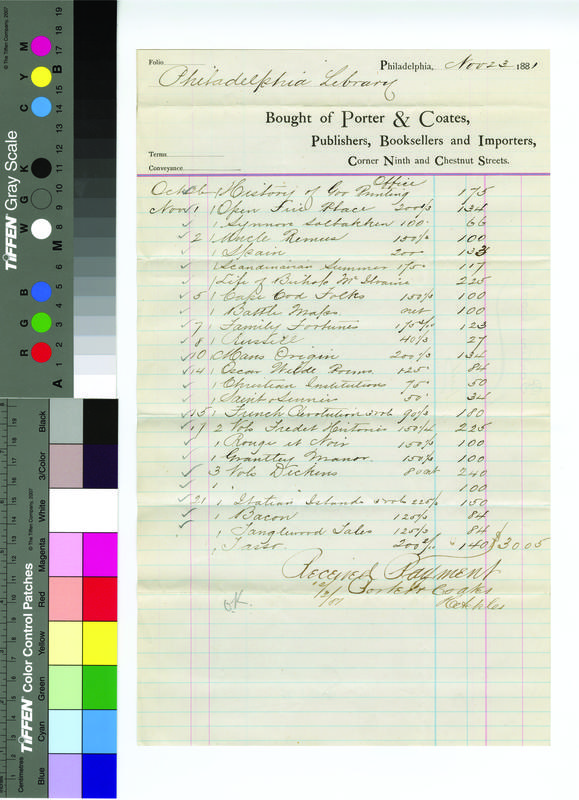 Folio
Philadelphia, Nov 23 1881
Philadelphia Library
Bought of Porter & Coates,
Publishers, Booksellers and Importers,
Corner Ninth and Chestnut Streets.
Terms
Conveyance
Oct 26 1 History of Gov Printing Office 175
Nov 1 1 Open Fire Place 200 1/3 134
1 Synnove Solbakken 100 66
2 1 Uncle Remus 150 1/3 100
1 Spain 200 133
1 Scandinavian Summer 175 117
1 Life of Bishop McIlvaine 225
5 1 Cape Cod Folks 150 1/3 100
1 Battle Maps net 100
7 1 Family Fortunes 175 123
8 1 Russell 40 1/3 27
10 1 Mans Origin 200 1/3 134
14 1 Oscar Wilde Poems 125 84
1 Christian Institutions 75 50
1 Saint & Sinner 50 34
15 1 French Revolution 3 vols 90 1/3 180
17 2 Vols Fredet Histories 150 1/4 225
1 Rouge et Noir 150 1/3 100
1 Grantley Manor 150 1/3 100
3 Vols Dickens 80 net 240
1 " 100
21 1 Italian Islands 225 1/3 150
1 Bacon 125 1/3 84
1 Tanglewood Tales 125 1/3 84
1 Tasso 200 140 $30.05
Received Payment
Porter & Coates
O.K.
TIFFEN Gray Scale
© The Tiffen Company, 2007
R G B W G K C Y M
A 1 2 3 4 5 6 M 8 9 10 11 12 13 14 15 B 17 18 19
TIFFEN Color Control Patches
© The Tiffen Company, 2007
Centimetres
Blue Cyan Green Yellow Red Magenta White 3/Color Black